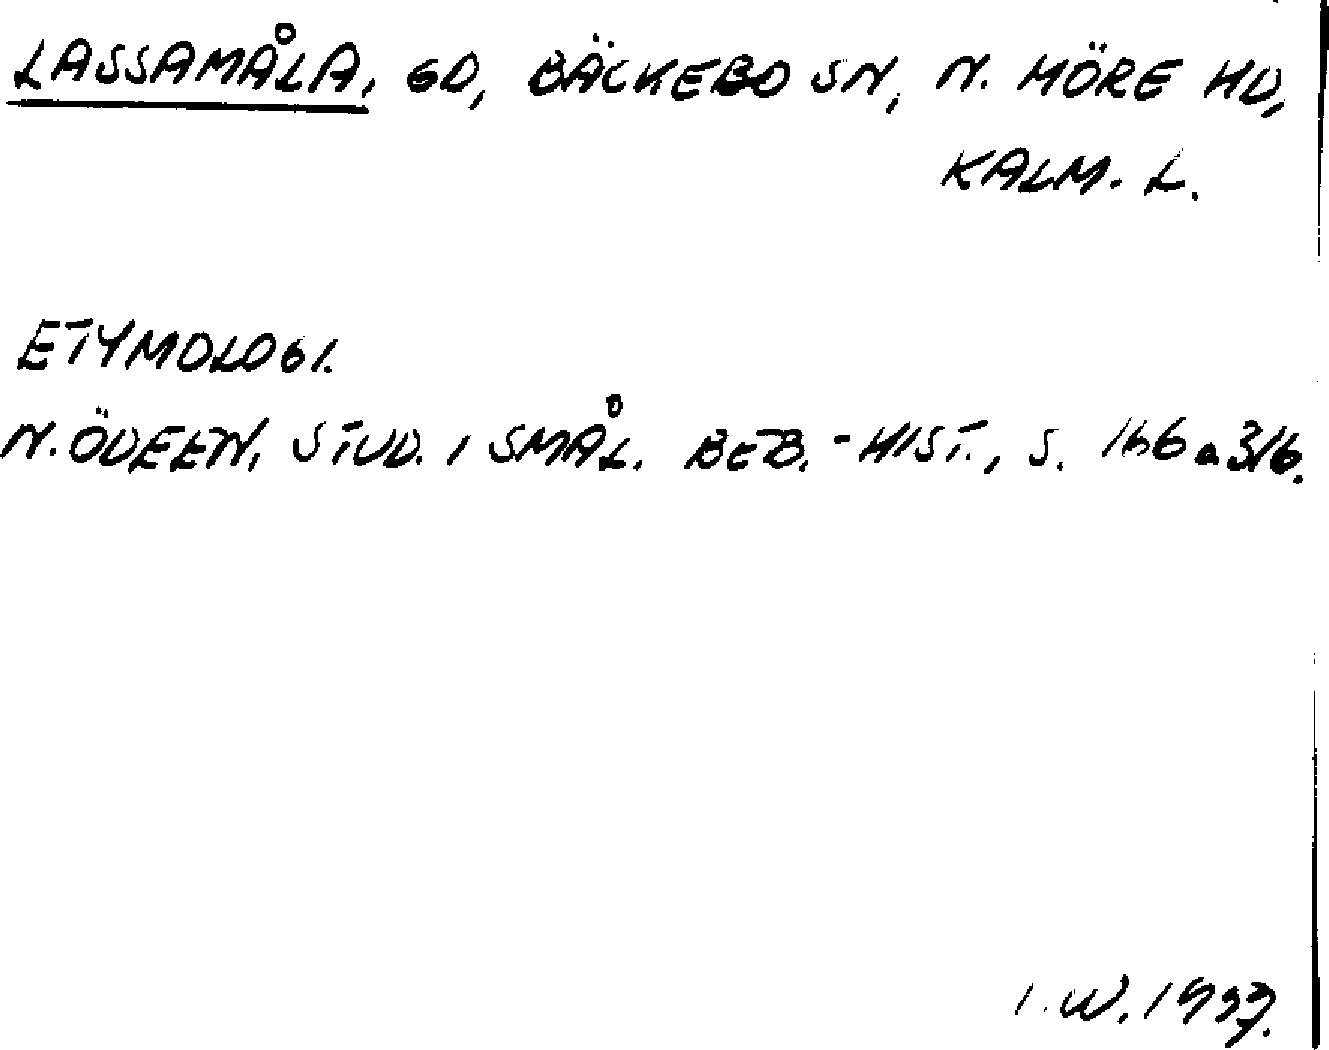 LASSAMÅLA, GD, BÄCKEBO SN, N. MÖRE HD,
KALM. L.
ETYMOLOGI.
N. ÖDEEN, STUD. I SMÅL. BEB.-HIST., S. 166 a 316.
I. W.